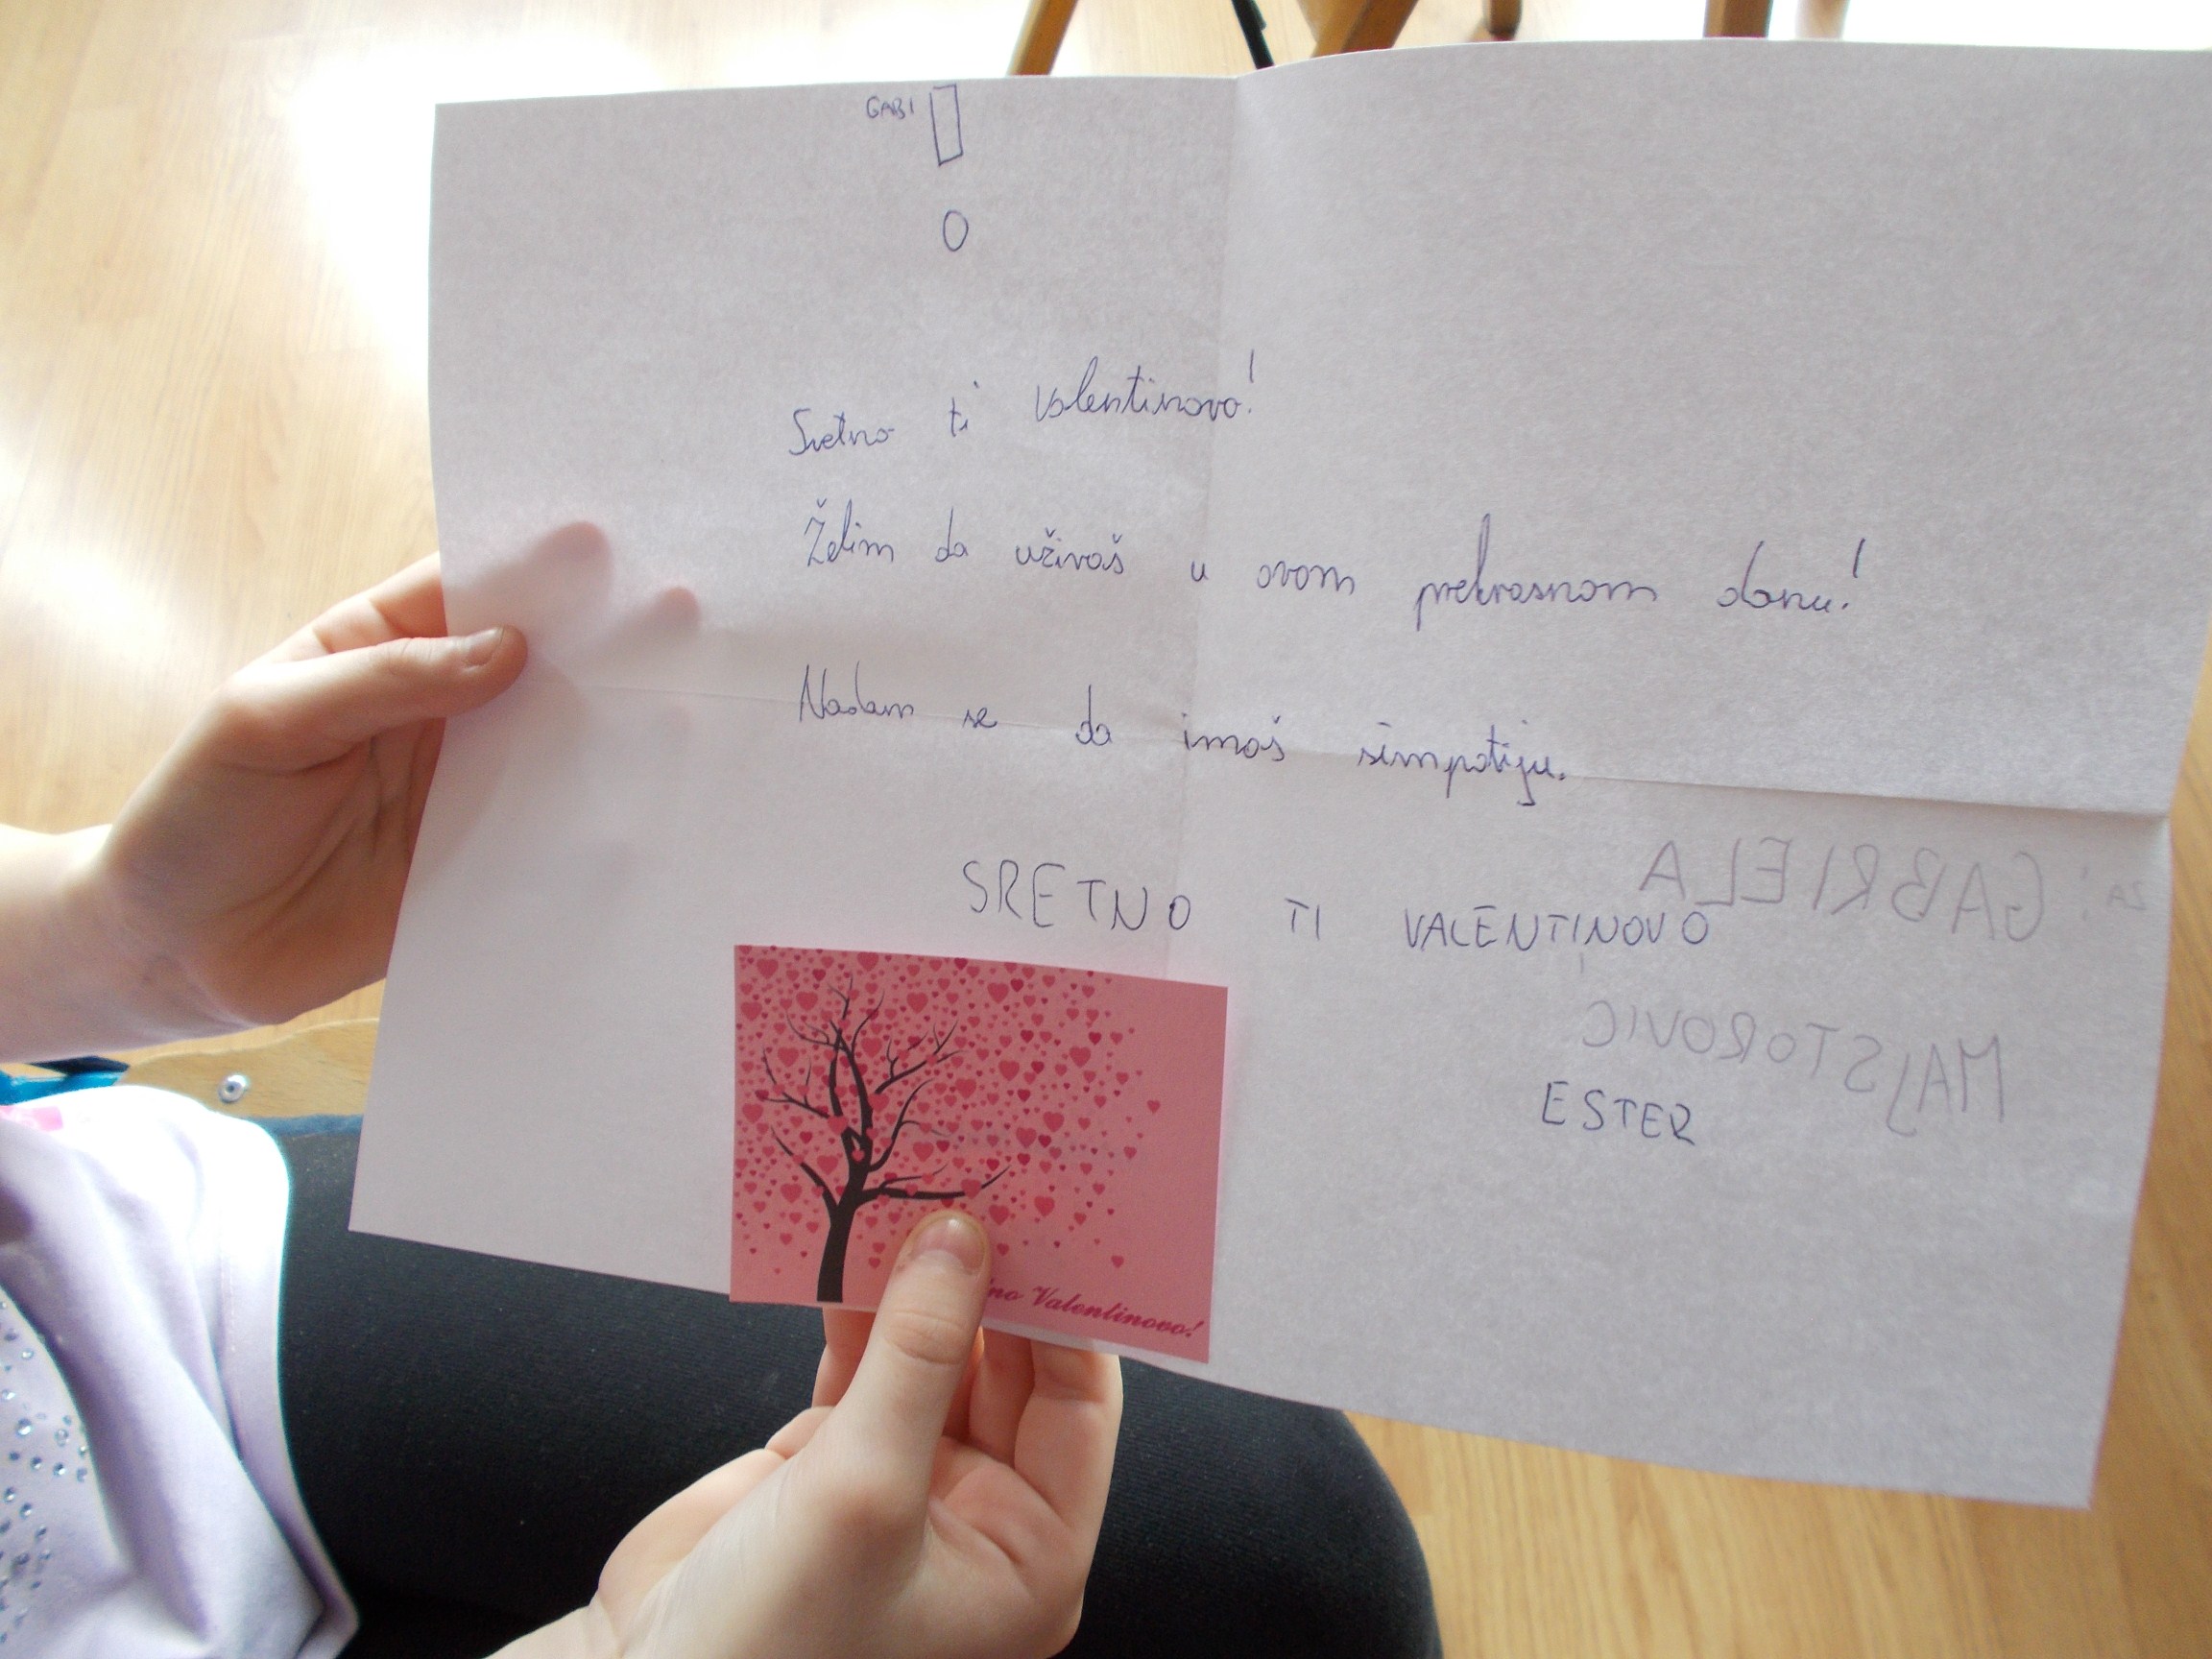 GABI
Sretno ti Valentinovo!
Želim da uživaš u ovom prekrasnom danu!
Nadam se da imaš simpatiju.
SRETNO TI VALENTINOVO
ZA: GABRIELA
MAJSTOROVIC
ESTER
Valentinovo!